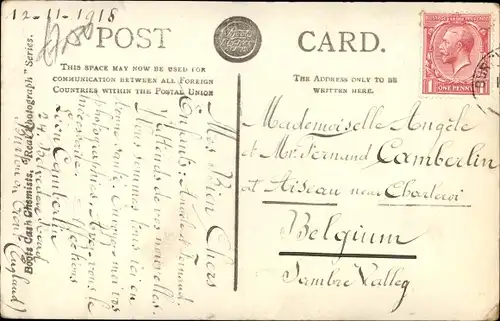 12-11-1918
POST CARD.
THIS SPACE MAY NOW BE USED FOR
COMMUNICATION BETWEEN ALL FOREIGN
COUNTRIES WITHIN THE POSTAL UNION
THE ADDRESS ONLY TO BE
WRITTEN HERE.
Boots Cash Chemists, "Real Photograph" Series.
ONE PENNY
Mademoiselle Angèle
et Mr. Fernand Camberlin
at Aiseau near Charleroi
Belgium
Sambre Valley
Mes Bien Chers
Enfants: Angèle et Fernand.
J'attends de vos nouvelles.
Nous sommes tous ici en
bonne santé.
photographies. Avez-vous le
nécessaire. Affections
Léon Camberlin
(England)